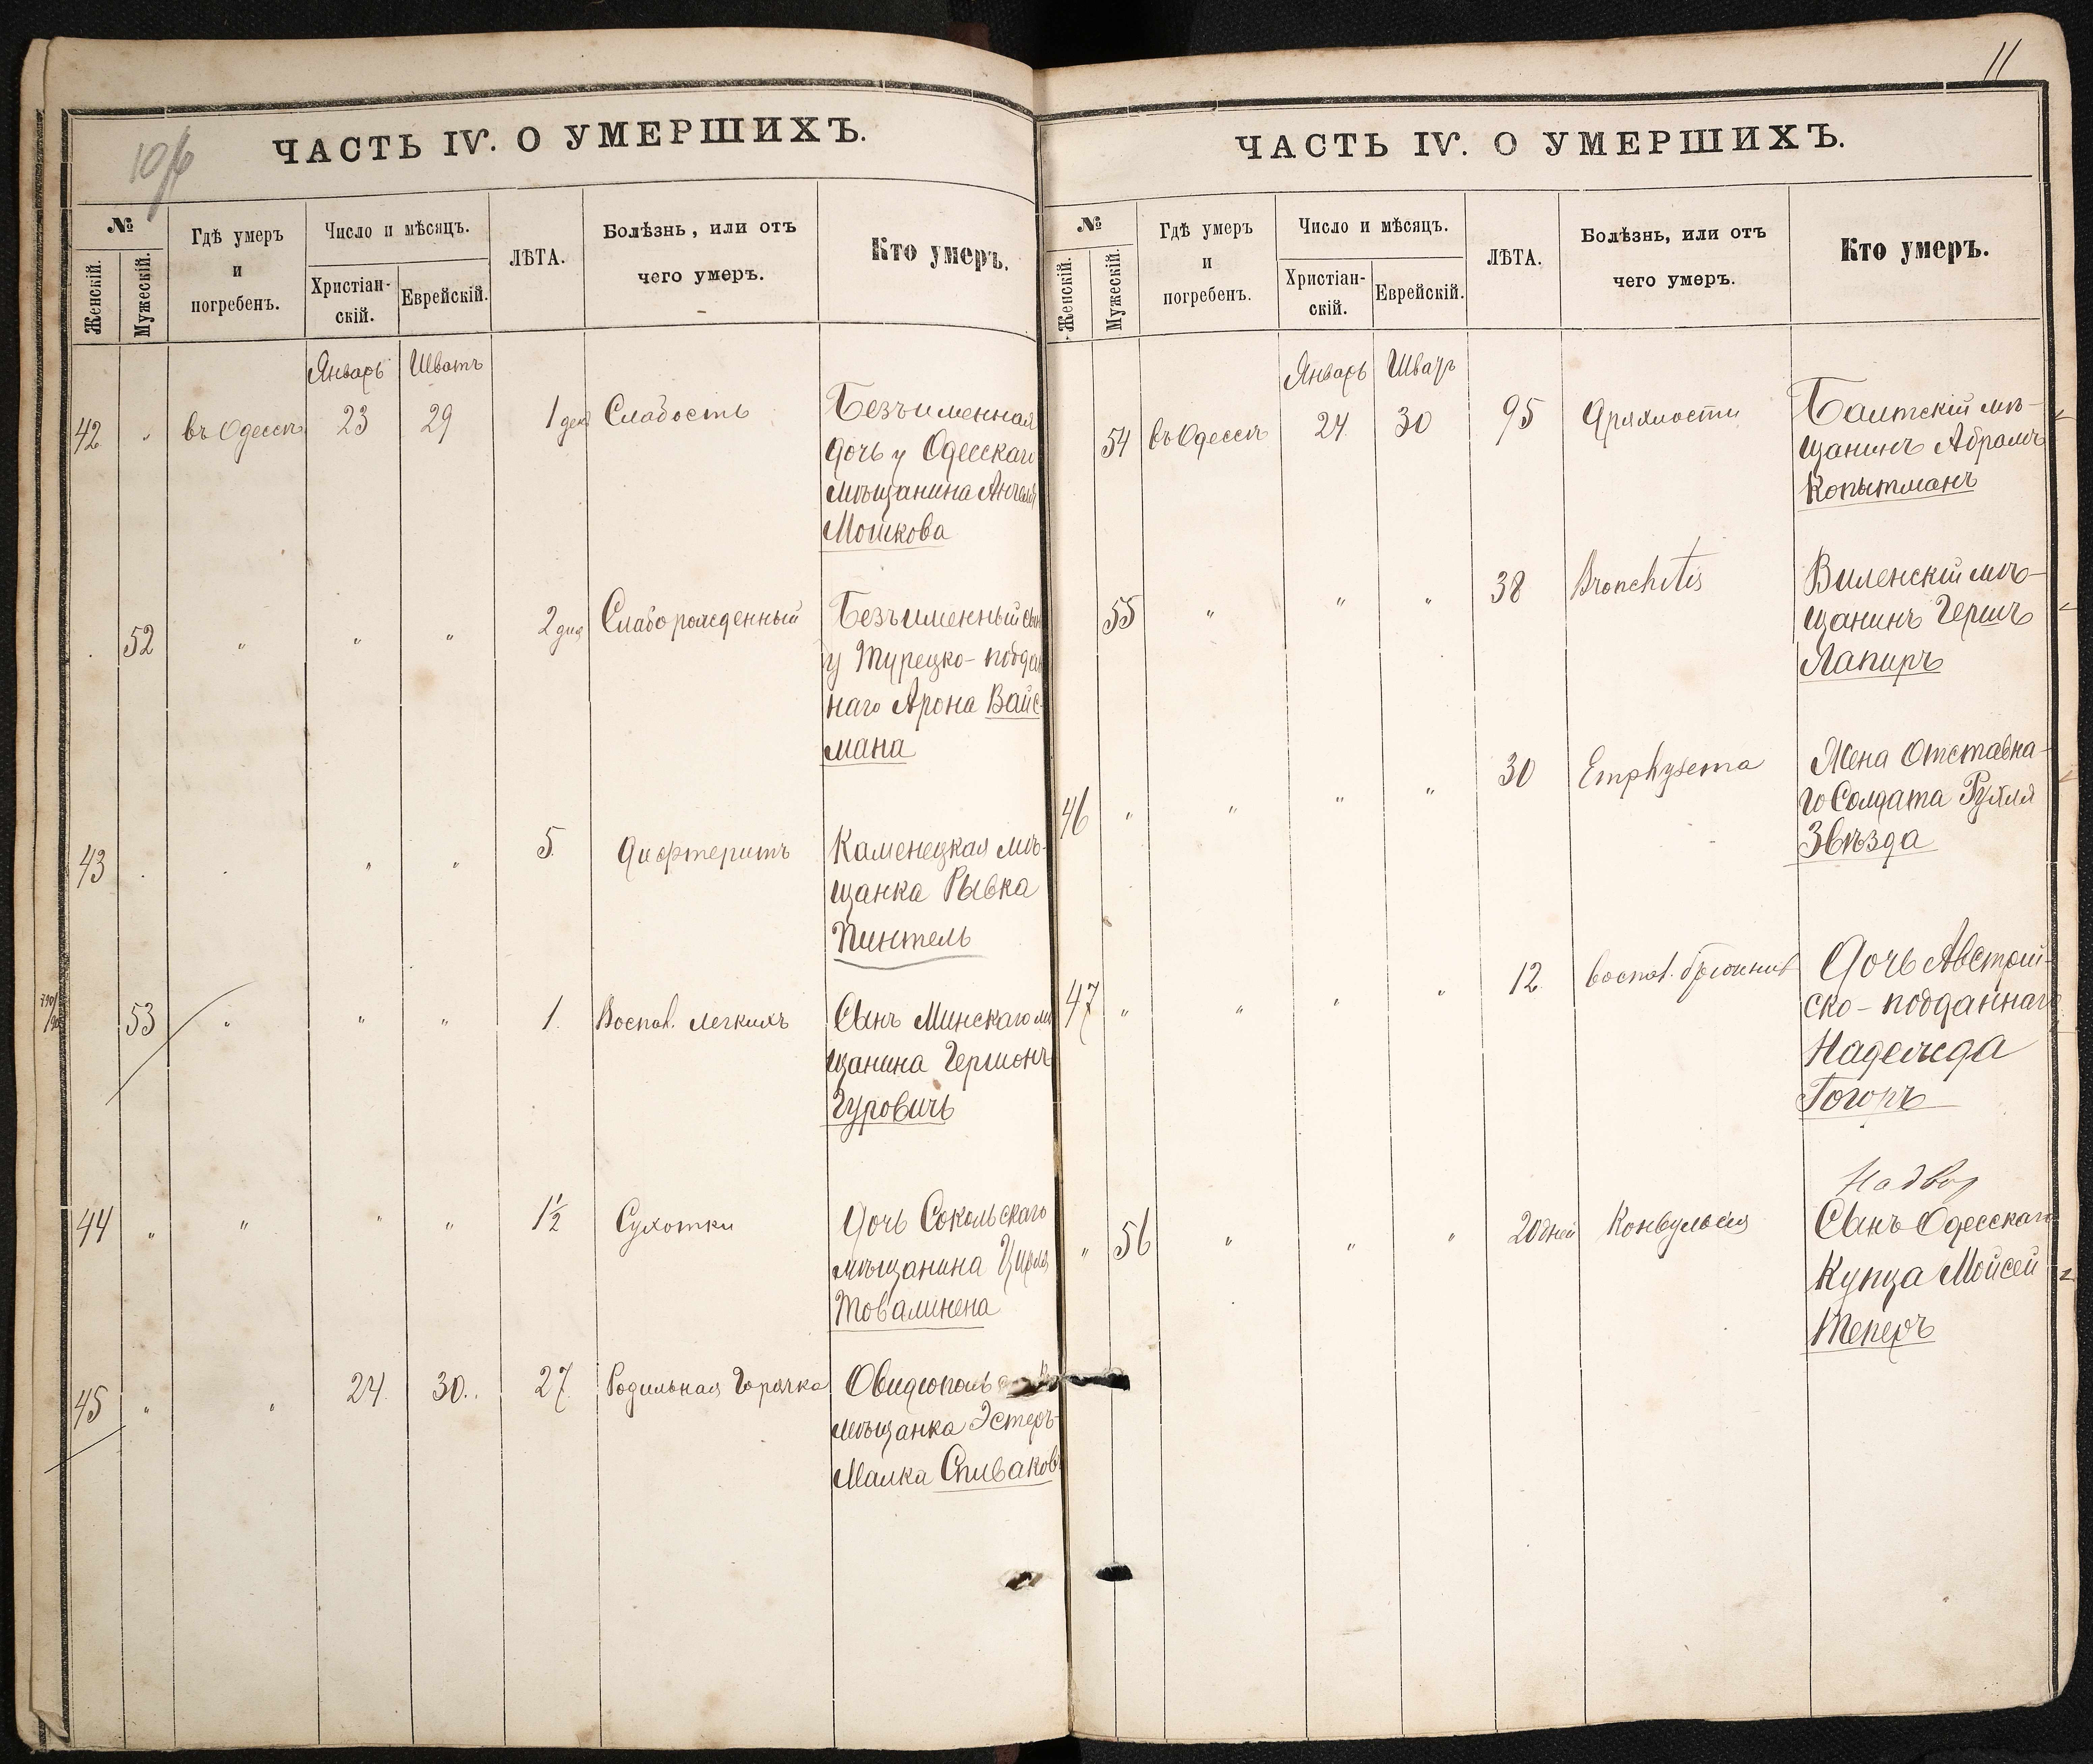 10/б
ЧАСТЬ IV. О УМЕРШИХЪ.
№
Женскій.
Мужескій.
Гдѣ умеръ
и
погребенъ.
Число и мѣсяцъ.
Христіан-
скій.
Еврейскій.
ЛѢТА.
Болѣзнь, или отъ
чего умеръ.
Кто умеръ.
Январь Шватъ
42 " въ Одессѣ 23 29 1 день Слабость Безъименная
дочь у Одесскаго
мѣщанина
Мошкова
52 " " " 2 дня Слаборожденный Безъименный сынъ
у Турецко-поддан
наго Арона Вайс-
мана
43 " " 5 Дифтеритъ Каменецкая мѣ-
щанка Рывка
Пинтель
53 " " " 1. Воспал. легкихъ Сынъ Минскаго мѣ
щанина Гершонъ
Гуровичъ
44 " " " " 1½ Сухотки Дочь Сокольскаго
мѣщанина Цирля
Товалинена
45 " " 24. 30. 27 Родильная Горячка Овидіополь
мѣщанка Эстеръ-
Малка Спиваков
11
ЧАСТЬ IV. О УМЕРШИХЪ.
№
Женскій.
Мужескій.
Гдѣ умеръ
и
погребенъ.
Число и мѣсяцъ.
Христіан-
скій.
Еврейскій.
ЛѢТА.
Болѣзнь, или отъ
чего умеръ.
Кто умеръ.
Январь Шватъ
54 въ Одессѣ 24. 30 95 Дряхлости Балтскій мѣ-
щанинъ Абрамъ
Копытманъ
55 " " " 38 Bronchitis Виленскій мѣ-
щанинъ Гершъ
Лапиръ
46 " " " " 30 Emphysema Жена Отставна-
го Солдата Рухля
Звѣзда
47 " " " " 12 воспал. брюшины Дочь Австрій-
ско-подданнаго
Надежда
Гогоръ
Надвор
" 56 " " " 20 дней Конвульсія Сынъ Одесскаго
Купца Мойсей
Теперъ